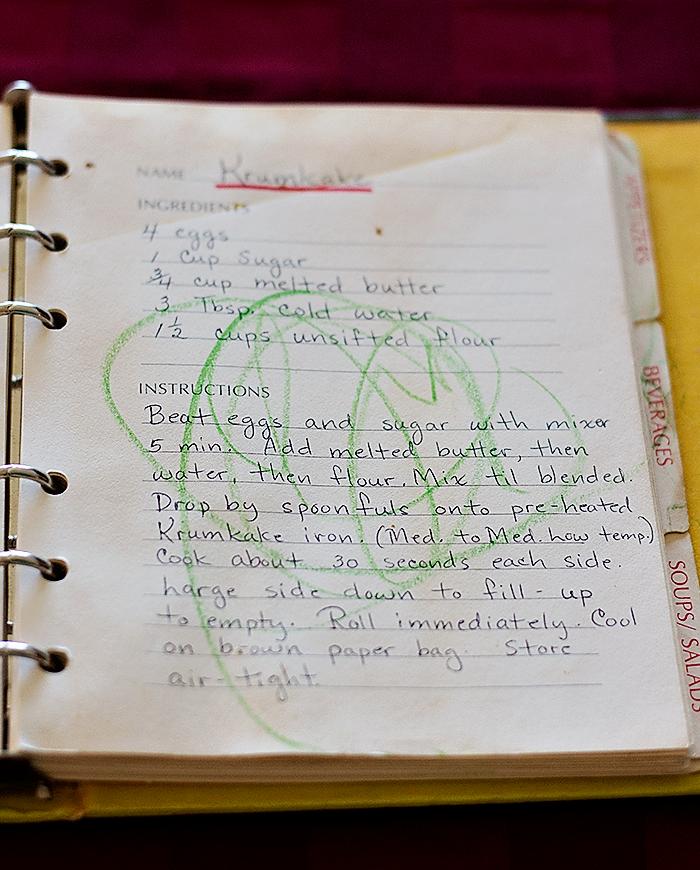 NAME Krumkake
INGREDIENTS
4 eggs
1 cup Sugar
3/4 cup melted butter
3 Tbsp. cold water
1 1/2 cups unsifted flour
INSTRUCTIONS
Beat eggs and sugar with mixer
5 min. Add melted butter, then
water, then flour. Mix til blended.
Drop by spoonfuls onto pre-heated
Krumkake iron. (Med. to Med. Low temp.)
Cook about 30 seconds each side.
Large side down to fill - up
to empty. Roll immediately. Cool
on brown paper bag. Store
air-tight.
APPETIZERS
BEVERAGES
SOUPS/SALADS